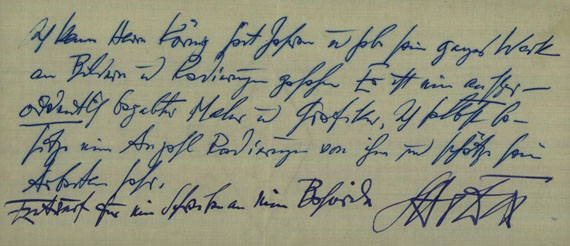 Ich kenne Herrn König seit Jahren u. habe sein ganzes Werk
an Bildern u. Radierungen gesehen. Er ist ein außer-
ordentlich begabter Maler u. Grafiker, ich selbst be-
sitze eine Anzahl Radierungen von ihm und schätze seine
Arbeiten sehr.
Entwurf für ein Schreiben an eine Behörde